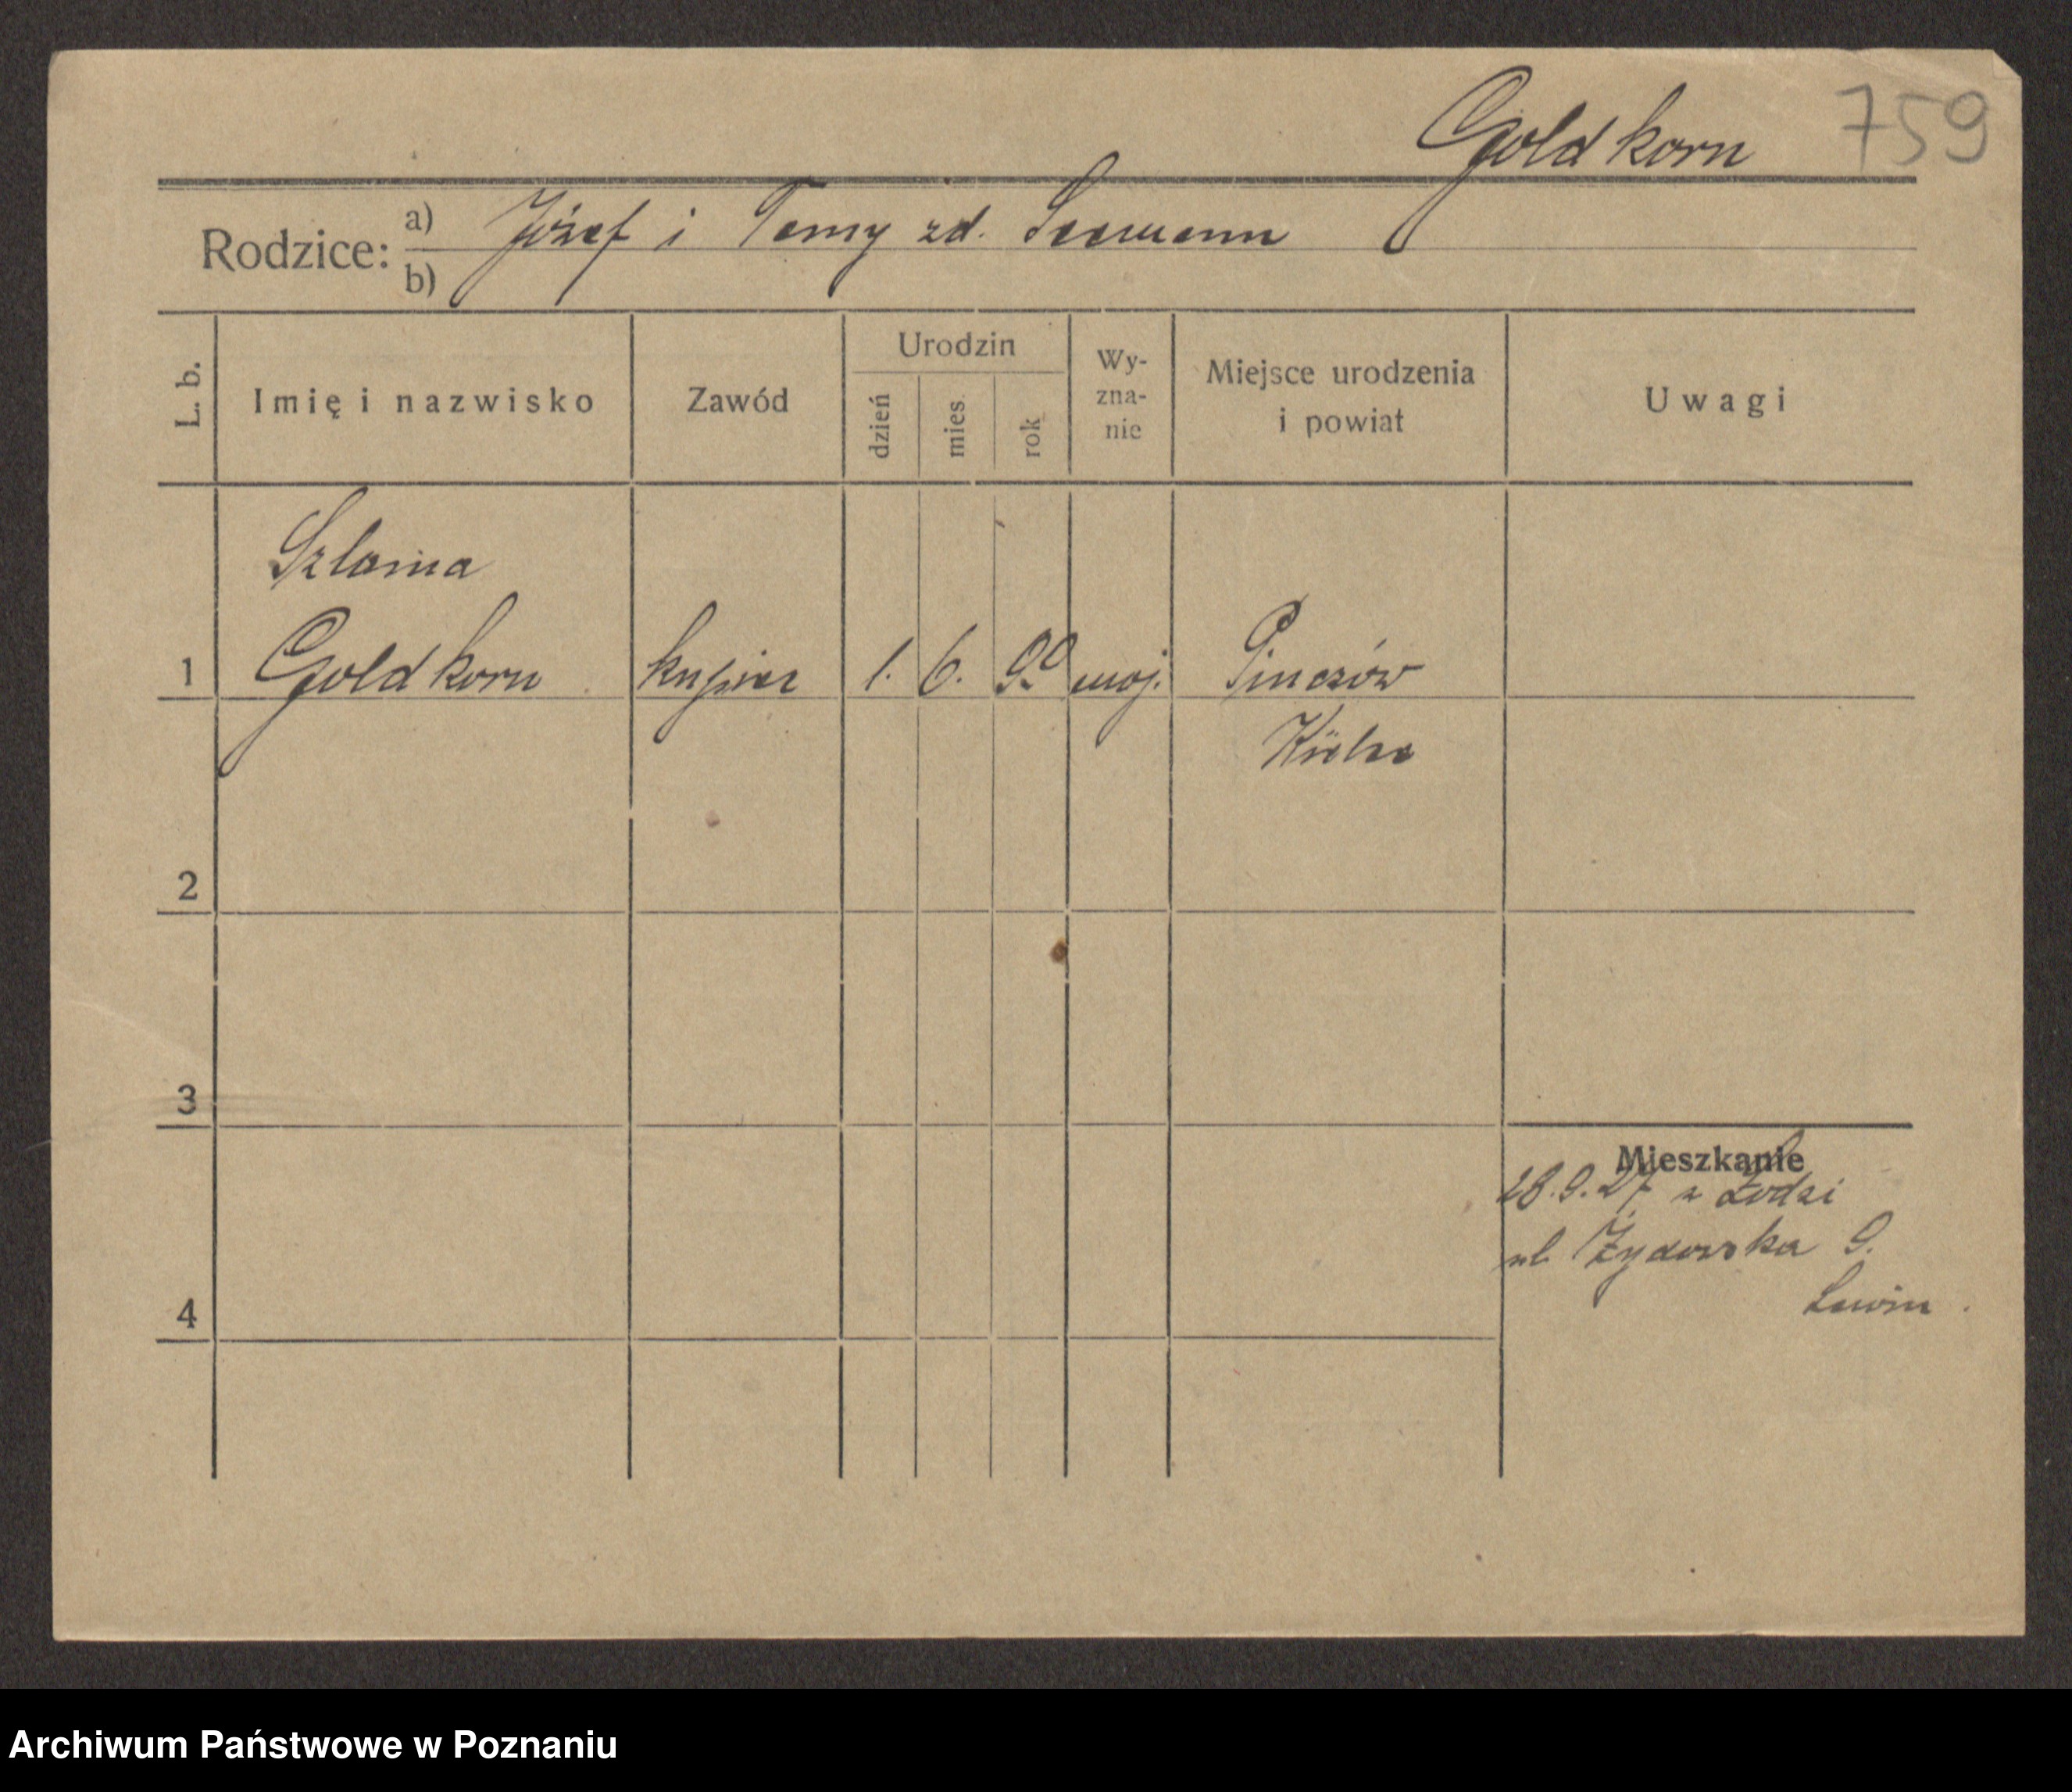 Goldkorn 759
Rodzice: a) Józef i Temy zd. Seemann
b)
L. b. Imię i nazwisko Zawód Urodzin dzień mies. rok Wy-zna-nie Miejsce urodzenia i powiat Uwagi
Szlama
1 Goldkorn kupiec 1. 6. 90 moj. Pinczów
Kielce
2
3
Mieszkanie
28.9.27 z Łodzi
ul. Żydowska 9.
4 Lewin.
Archiwum Państwowe w Poznaniu